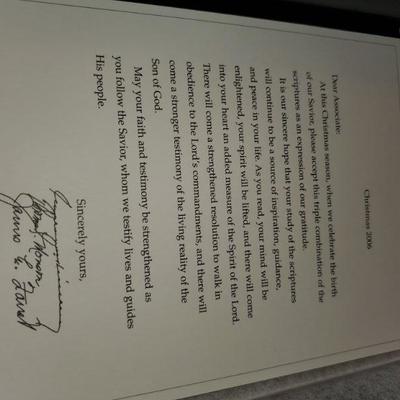 Christmas 2006
Dear Associate:
At this Christmas season, when we celebrate the birth
of our Savior, please accept this triple combination of the
scriptures as an expression of our gratitude.
It is our sincere hope that your study of the scriptures
will continue to be a source of inspiration, guidance,
and peace in your life. As you read, your mind will be
enlightened, your spirit will be lifted, and there will come
into your heart an added measure of the Spirit of the Lord.
There will come a strengthened resolution to walk in
obedience to the Lord's commandments, and there will
come a stronger testimony of the living reality of the
Son of God.
May your faith and testimony be strengthened as
you follow the Savior, whom we testify lives and guides
His people.
Sincerely yours,
James E. Faust